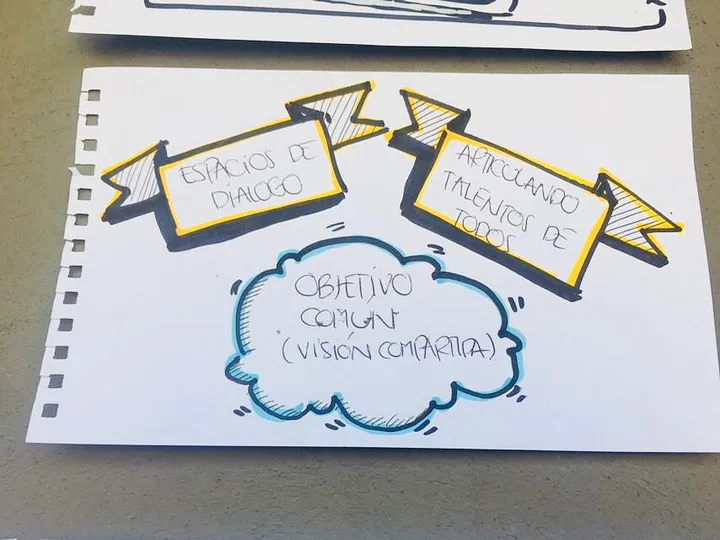 ESPACIOS DE
DIALOGO
ARTICULANDO
TALENTOS DE
TODOS
OBJETIVO
COMÚN
(VISIÓN COMPARTIDA)